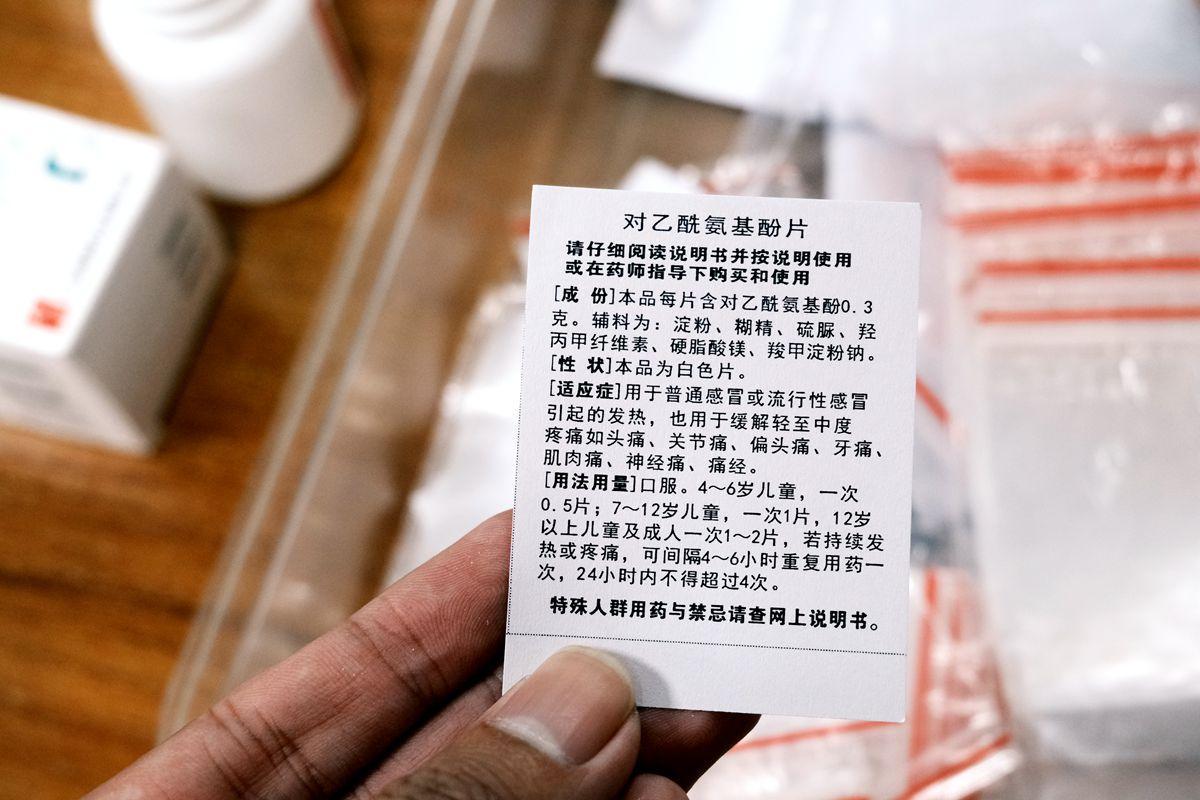 对乙酰氨基酚片
请仔细阅读说明书并按说明使用
或在药师指导下购买和使用
[成 份]本品每片含对乙酰氨基酚0.3
克。辅料为：淀粉、糊精、硫脲、羟
丙甲纤维素、硬脂酸镁、羧甲淀粉钠。
[性 状]本品为白色片。
[适应症]用于普通感冒或流行性感冒
引起的发热，也用于缓解轻至中度
疼痛如头痛、关节痛、偏头痛、牙痛、
肌肉痛、神经痛、痛经。
[用法用量]口服。4～6岁儿童，一次
0.5片；7～12岁儿童，一次1片，12岁
以上儿童及成人一次1～2片，若持续发
热或疼痛，可间隔4～6小时重复用药一
次，24小时内不得超过4次。
特殊人群用药与禁忌请查网上说明书。